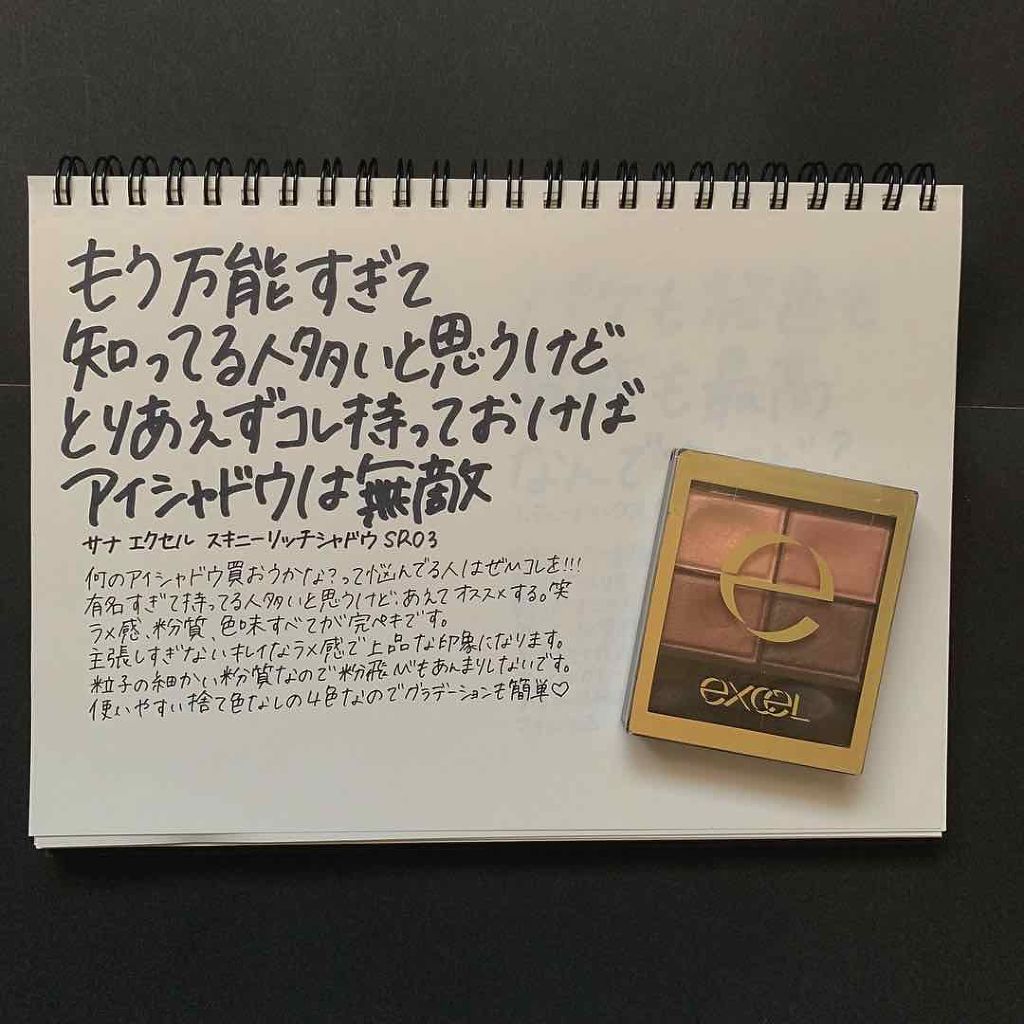 もう万能すぎて
知ってる人多いと思うけど
とりあえずコレ持っておけば
アイシャドウは無敵
サナ エクセル スキニーリッチシャドウ SR03
何のアイシャドウ買おうかな?って悩んでる人はぜひコレを!!!
有名すぎて持ってる人多いと思うけど、あえてオススメする。笑
ラメ感、粉質、色味すべてが完ペキです。
主張しすぎないキレイなラメ感で上品な印象になります。
粒子の細かい粉質なので粉飛びもあんまりしないです。
使いやすい捨て色なしの4色なのでグラデーションも簡単♡
e
excel